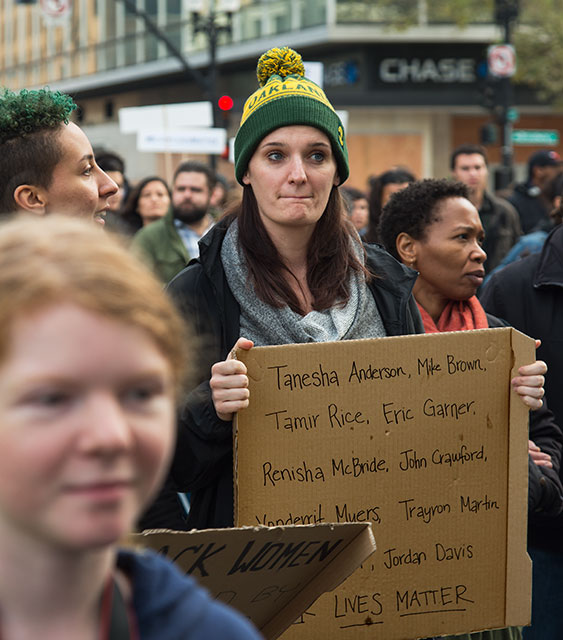 OAKLAN
CHASE
Tanesha Anderson, Mike Brown,
Tamir Rice, Eric Garner,
Renisha McBride, John Crawford,
Vonderrit Myers, Trayron Martin
, Jordan Davis
LIVES MATTER
CK WOMEN
BY